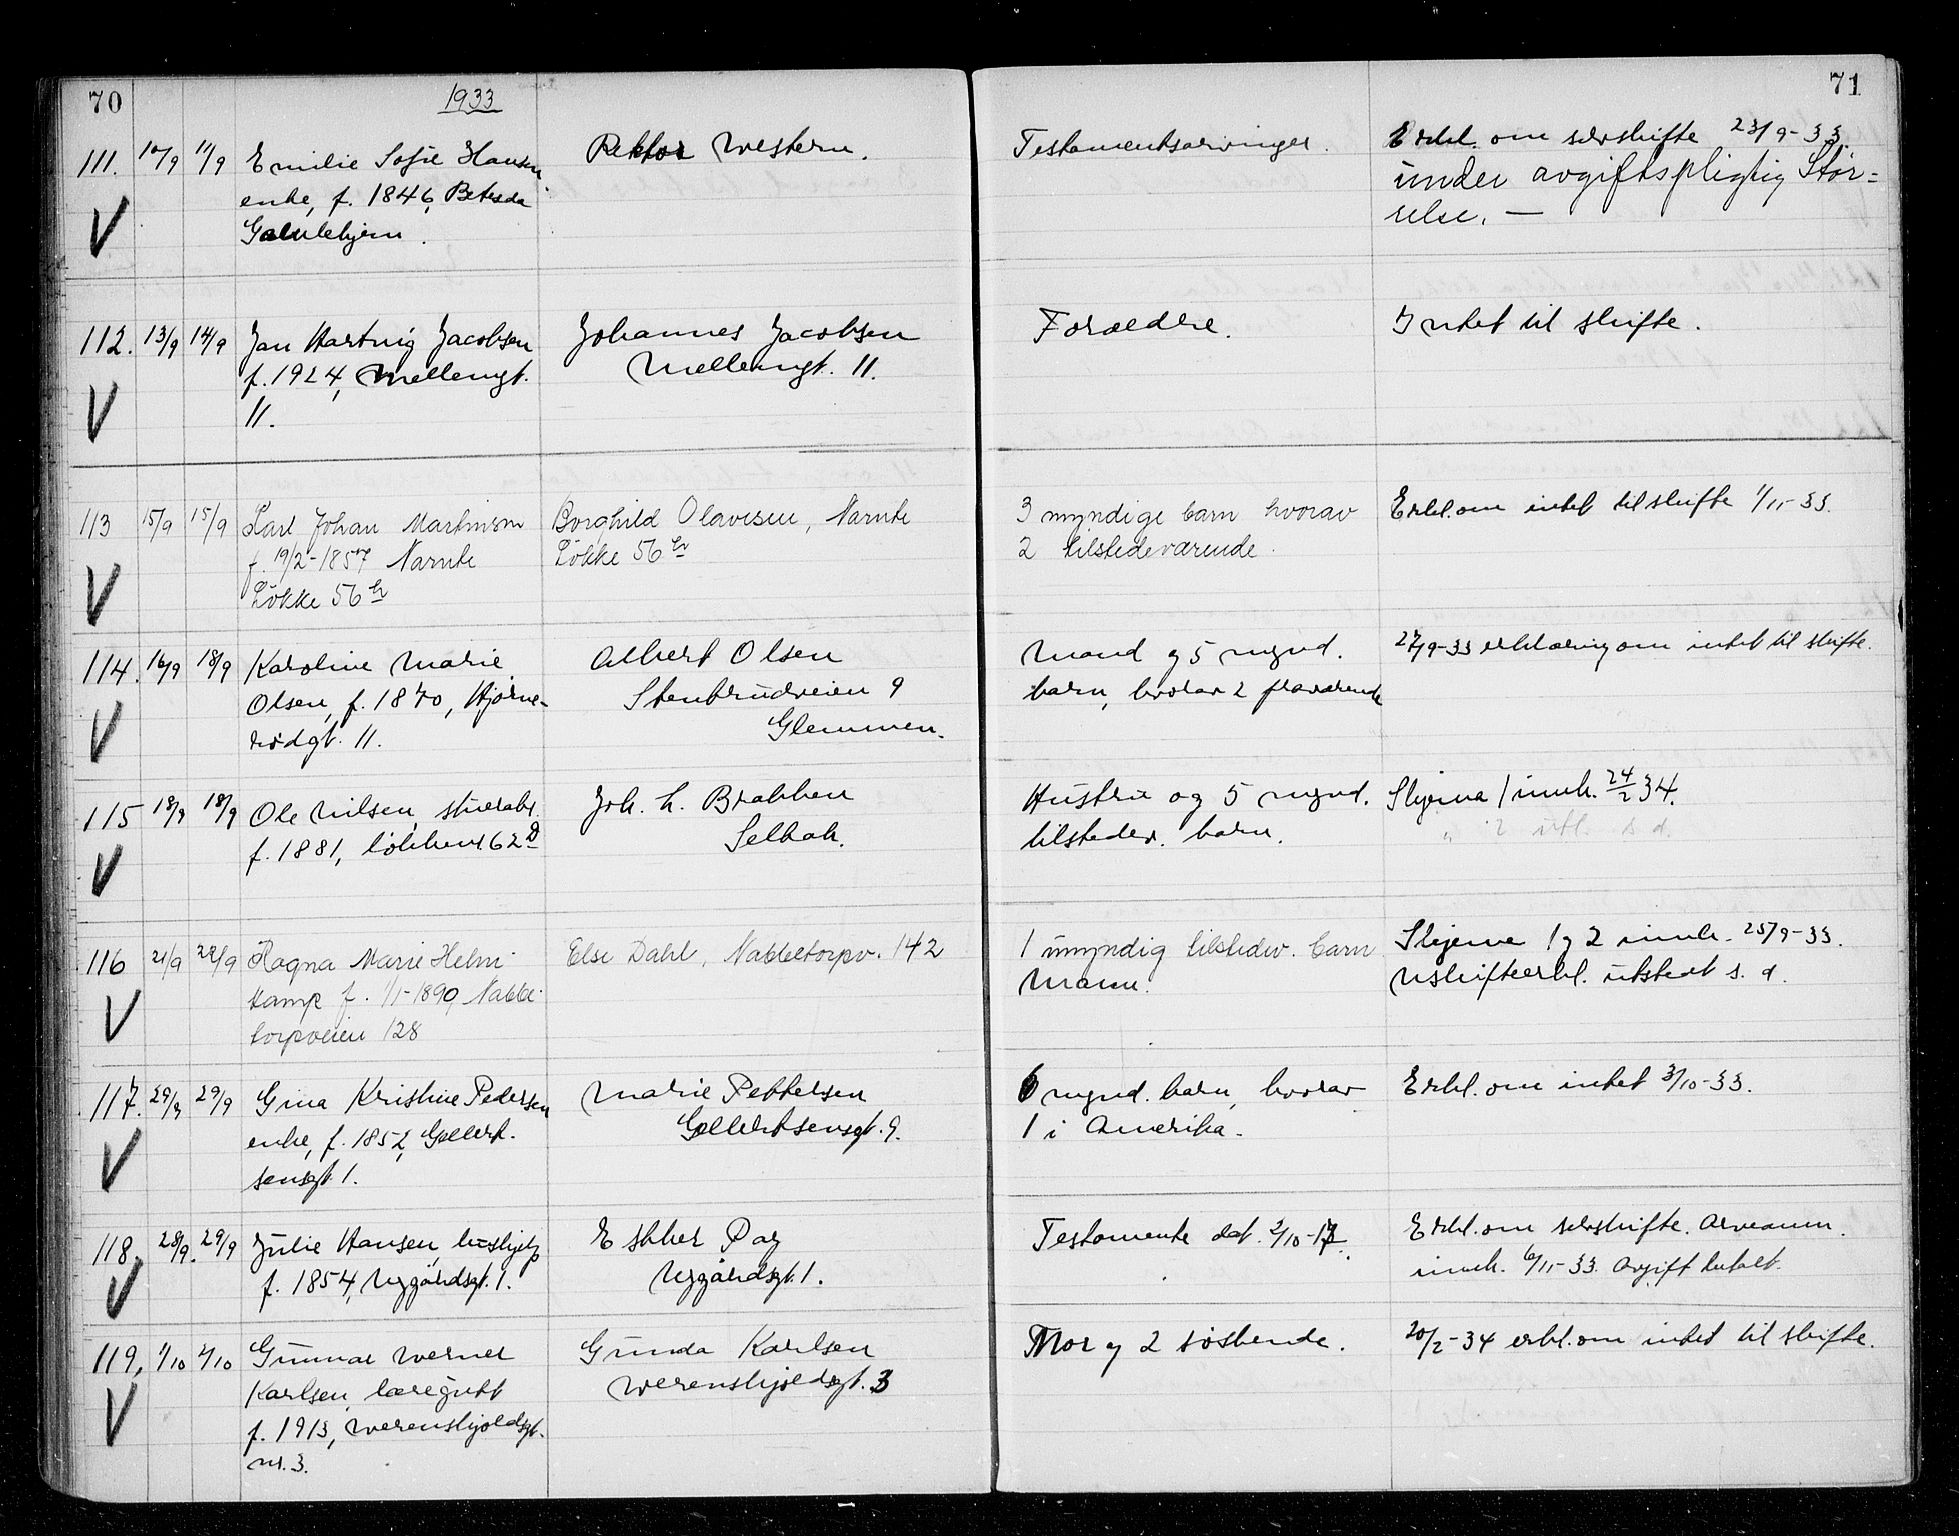 70
1933
71
111. 10/9 11/9 Emilie Sofie Hansen
enke, f. 1846, Betesda
Gamlehjem.
Rektor Western.
Testamentsarvinger.
Erkl. om selvskifte 23/9-33.
under avgiftspligtig Stør=
relse. —
112. 13/9 14/9 Jan Hartvig Jacobsen
f. 1924, Mellemgt.
11.
Johannes Jacobsen
Mellemgt. 11.
Forældre.
Intet til skifte.
113 15/9 15/9 Karl Johan Martinsen
f. 19/2-1857 Narnte
Løkke 56 b
Borghild Olavesen, Narnte
Løkke 56 b
3 myndige barn hvorav
2 tilstedeværende.
Erkl. om intet til skifte 1/11-33.
114. 16/9 18/9 Karoline Marie
Olsen, f. 1870, Hjørne-
rødgt. 11.
Albert Olsen
Stenbrudveien 9
Glemmen.
Mand og 5 mynd.
barn, hvorav 2 fraværende
27/9-33 erklæring om intet til skifte.
115 18/9 18/9 Ole Nilsen, stuerarb.
f. 1881, Løkken 62 D
Joh. L. Brakken
Selbak.
Hustru og 5 mynd.
tilstedev. barn.
Skjema 1 innk. 24/2 34.
" 2 utl. s. d.
116 21/9 22/9 Ragna Marie Helm-
kamp f. 1/1-1890, Nabbe-
torpveien 128
Else Dahl, Nabbetorpv. 142
1 umyndig tilstedev. barn
Mann.
Skjema 1 og 2 innk. 25/9-33.
Uskifteerkl. utstedt s. d.
117. 29/9 29/9 Gina Kristine Pedersen
enke, f. 1852, Gellert-
sensgt. 1.
Marie Pettersen
Gellertsensgt. 9.
6 mynd. barn, hvorav
1 i Amerika.
Erkl. om intet 3/10-33.
118. 28/9. 29/9 Julie Hansen, hushjelp
f. 1854, Nygårdsgt. 1.
Esther Pay
Nygårdsgt. 1.
Testamente dat. 2/10-17.
Erkl. om selvskifte. Arveanm.
innk. 6/11-33. Avgift betalt.
119, 1/10 2/10 Gunnar Werner
Karlsen, læregutt
f. 1913, Werenskjoldsgt.
nr. 3.
Gunda Karlsen
Werenskjoldsgt. 3
Mor og 2 søskende.
20/2-34 erkl. om intet til skifte.